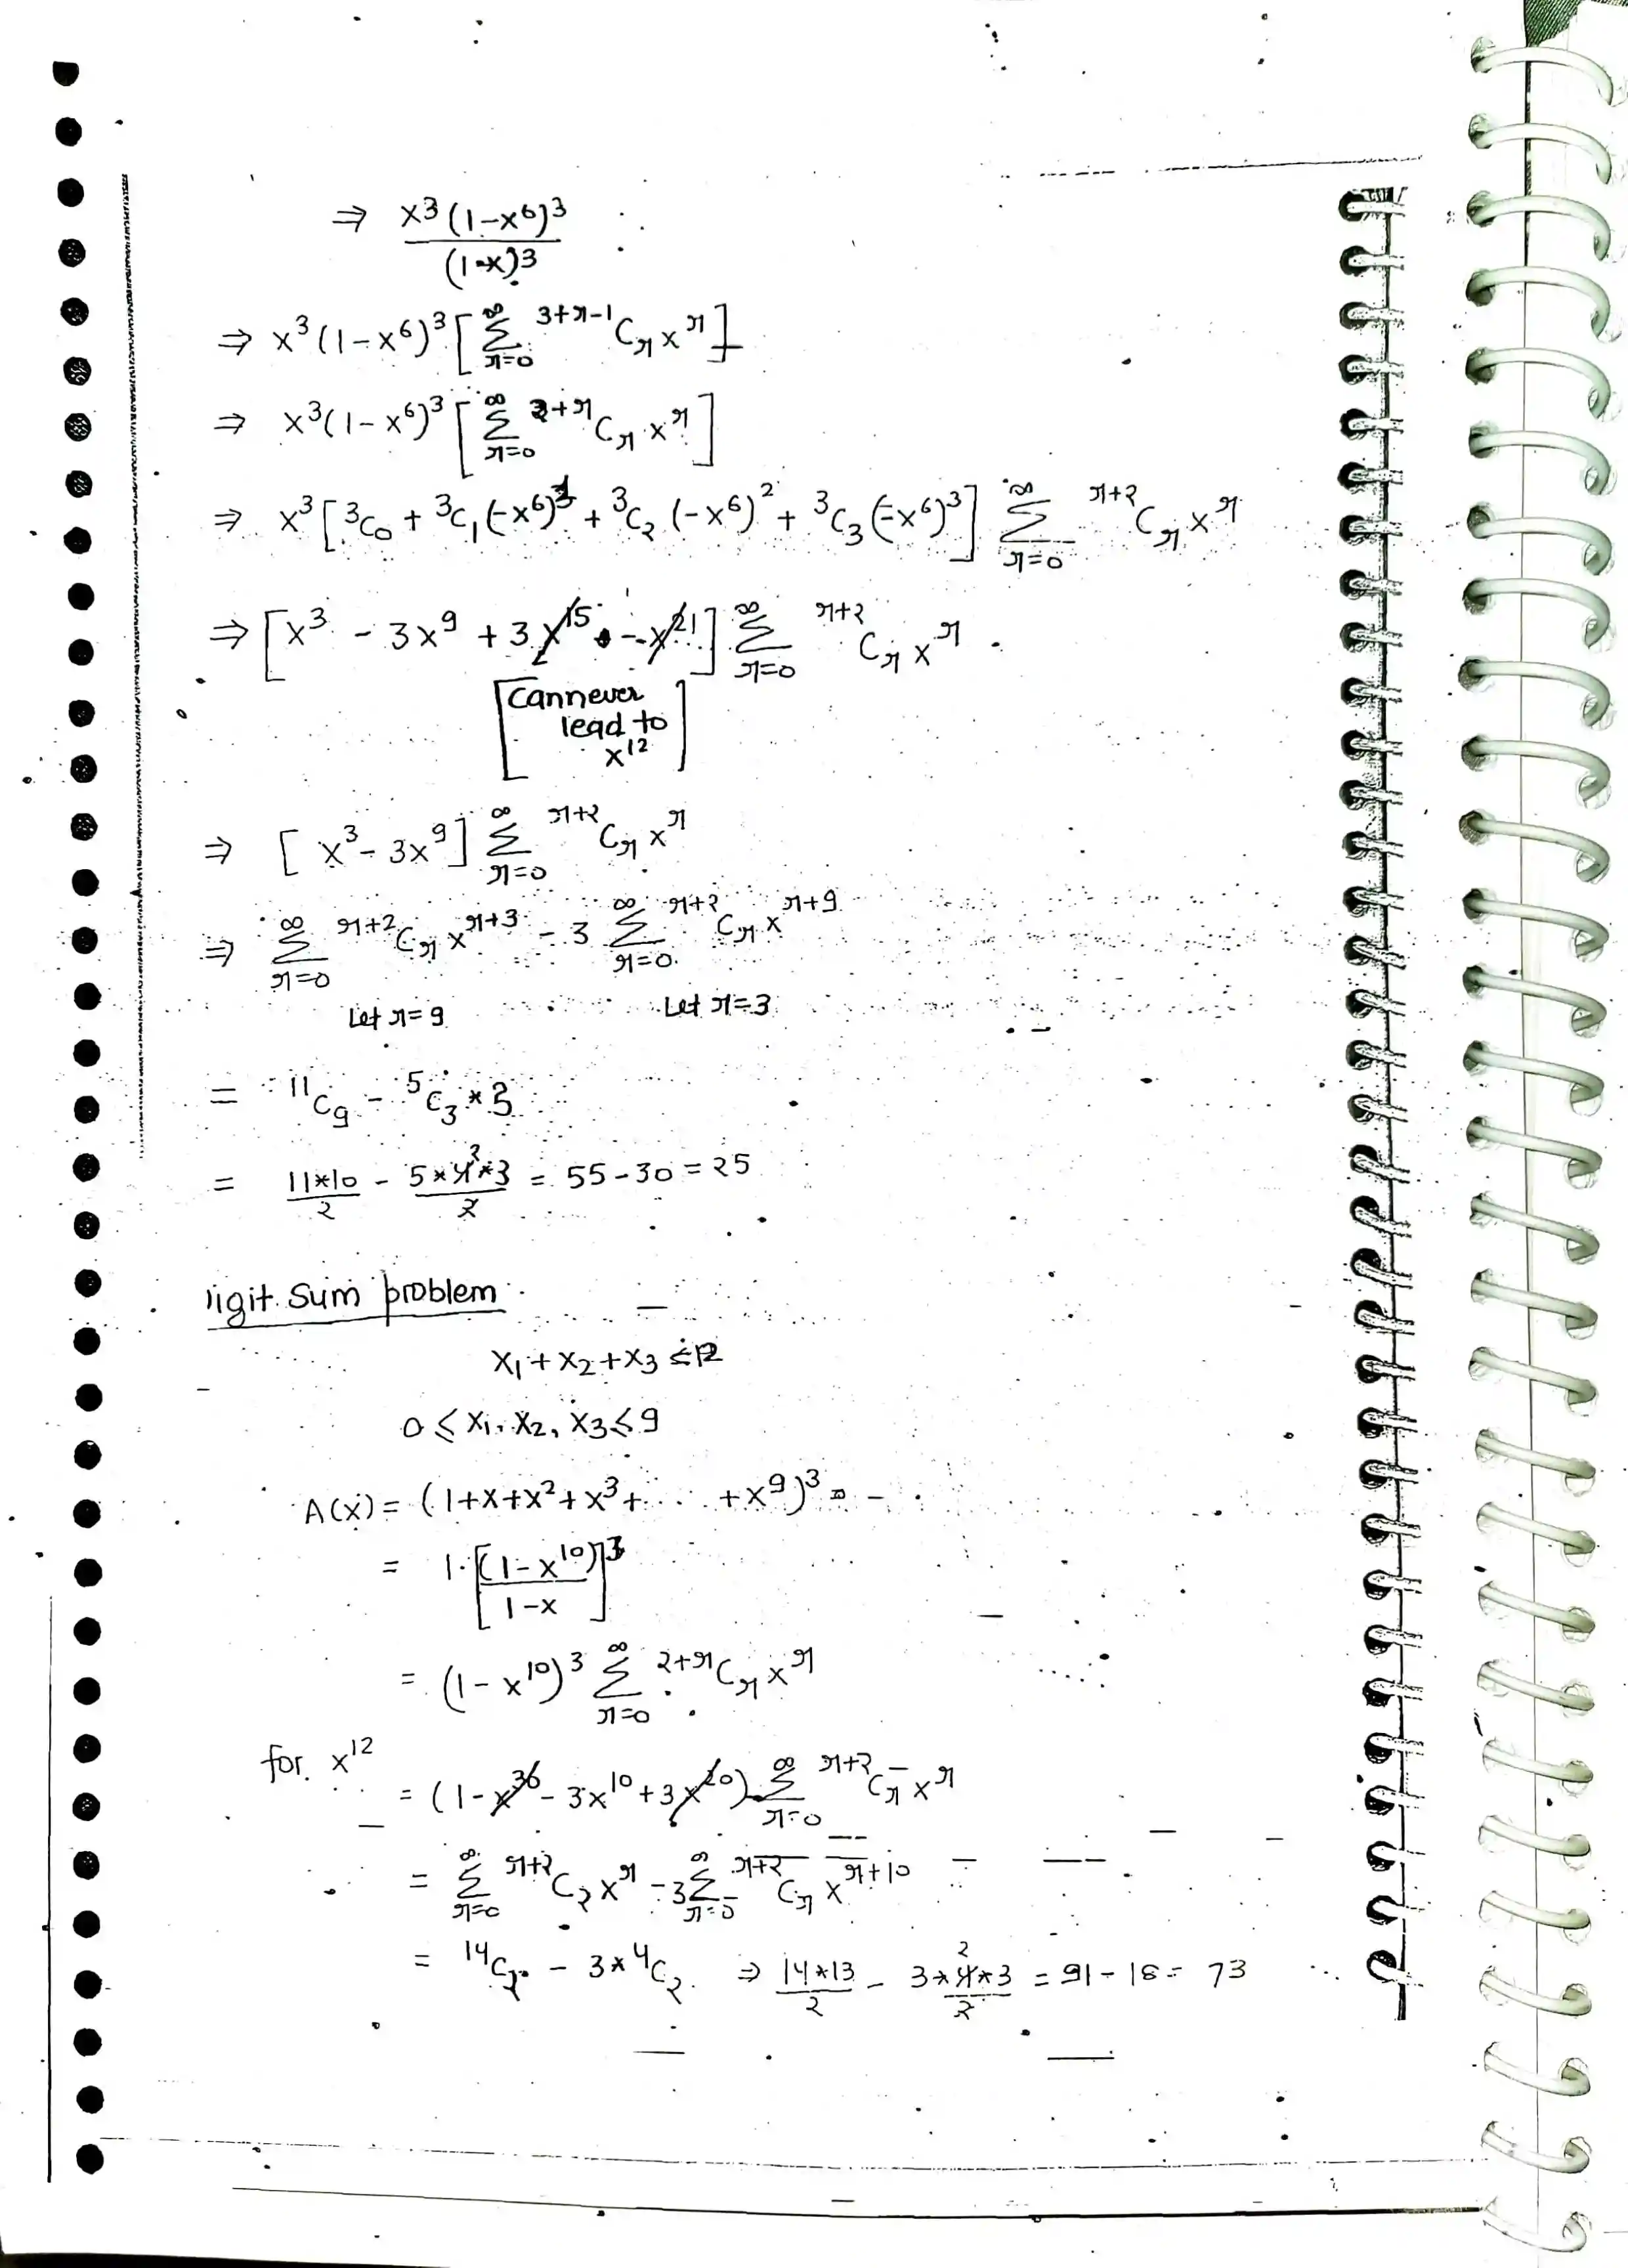 ⇒ x³(1-x⁶)³
(1-x)³
⇒ x³(1-x⁶)³ [ ∞ Σ r=0 ³⁺ʳ⁻¹Cᵣ xʳ ]
⇒ x³(1-x⁶)³ [ ∞ Σ r=0 ²⁺ʳCᵣ xʳ ]
⇒ x³ [ ³C₀ + ³C₁ (-x⁶)¹ + ³C₂ (-x⁶)² + ³C₃ (-x⁶)³ ] ∞ Σ r=0 ʳ⁺²Cᵣ xʳ
⇒ [ x³ - 3x⁹ + 3x¹⁵ - x²¹ ] ∞ Σ r=0 ʳ⁺²Cᵣ xʳ
[ Can never
lead to
x¹² ]
⇒ [ x³ - 3x⁹ ] ∞ Σ r=0 ʳ⁺²Cᵣ xʳ
⇒ ∞ Σ r=0 ʳ⁺²Cᵣ xʳ⁺³ - 3 ∞ Σ r=0 ʳ⁺²Cᵣ xʳ⁺⁹
Let r=9 Let r=3
= ¹¹C₉ - ⁵C₃ * 3
= 11*10/2 - 5*4*3/2 = 55-30 = 25
igit Sum problem
x₁ + x₂ + x₃ ≤ 12
0 ≤ x₁, x₂, x₃ ≤ 9
A(x) = (1+x+x²+x³+ .... +x⁹)³ =
= 1·[(1-x¹⁰)/1-x]³
= (1-x¹⁰)³ ∞ Σ r=0 ²⁺ʳCᵣ xʳ
for x¹²
= (1-x³⁰ - 3x¹⁰ + 3x²⁰) ∞ Σ r=0 ʳ⁺²Cᵣ xʳ
= ∞ Σ r=0 ʳ⁺²C₂ xʳ - 3 ∞ Σ r=0 ʳ⁺²Cᵣ xʳ⁺¹⁰
= ¹⁴C₂ - 3*⁴C₂ ⇒ 14*13/2 - 3*4*3/2 = 91-18 = 73